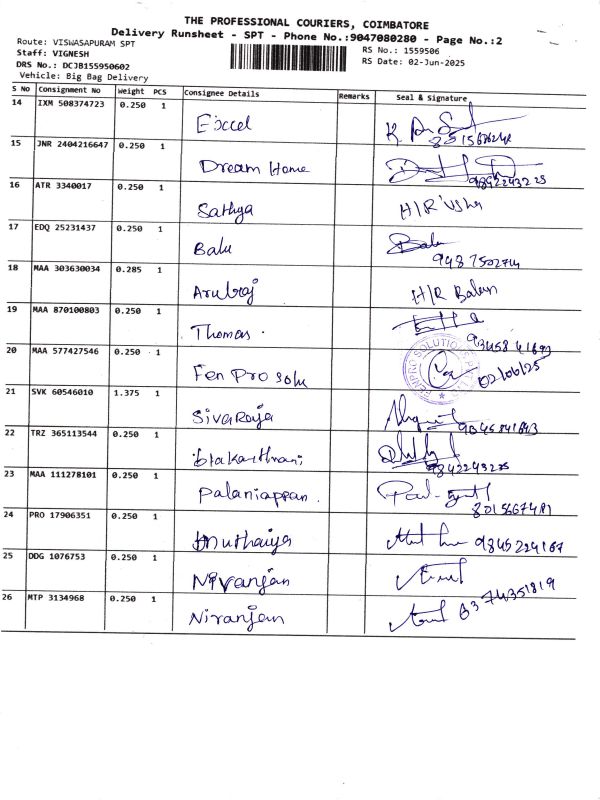 THE PROFESSIONAL COURIERS, COIMBATORE
Delivery Runsheet - SPT - Phone No.:9047080280 - Page No.:2
Route: VISWASAPURAM SPT
Staff: VIGNESH
DRS No.: DCJB155950602
Vehicle: Big Bag Delivery
RS No.: 1559506
RS Date: 02-Jun-2025
S No Consignment No Weight PCS Consignee Details Remarks Seal & Signature
14 IXM 508374723 0.250 1 Excel
15 JNR 2404216647 0.250 1 Dream Home 9842243225
16 ATR 3340017 0.250 1 Sathya H/R Usha
17 EDQ 25231437 0.250 1 Balu Balu 9487502744
18 MAA 303630034 0.285 1 Arulraj H/R
19 MAA 870100803 0.250 1 Thomas.
20 MAA 577427546 0.250 1 Fen Pro Solu FENPRO SOLUTIONS 02/06/25
21 SVK 60546010 1.375 1 SivaRaja
22 TRZ 365113544 0.250 1 9842243225
23 MAA 111278101 0.250 1 Palaniappan. 8015667481
24 PRO 17906351 0.250 1 Muthaiya 9845224167
25 DDG 1076753 0.250 1 Niranjan
26 MTP 3134968 0.250 1 Niranjan 6374351819